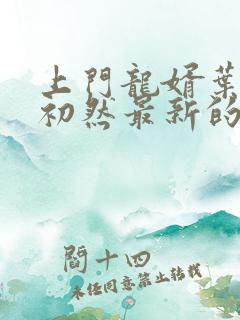 上門龍婿葉
初然最新的
閻十四
未经同意禁止转载